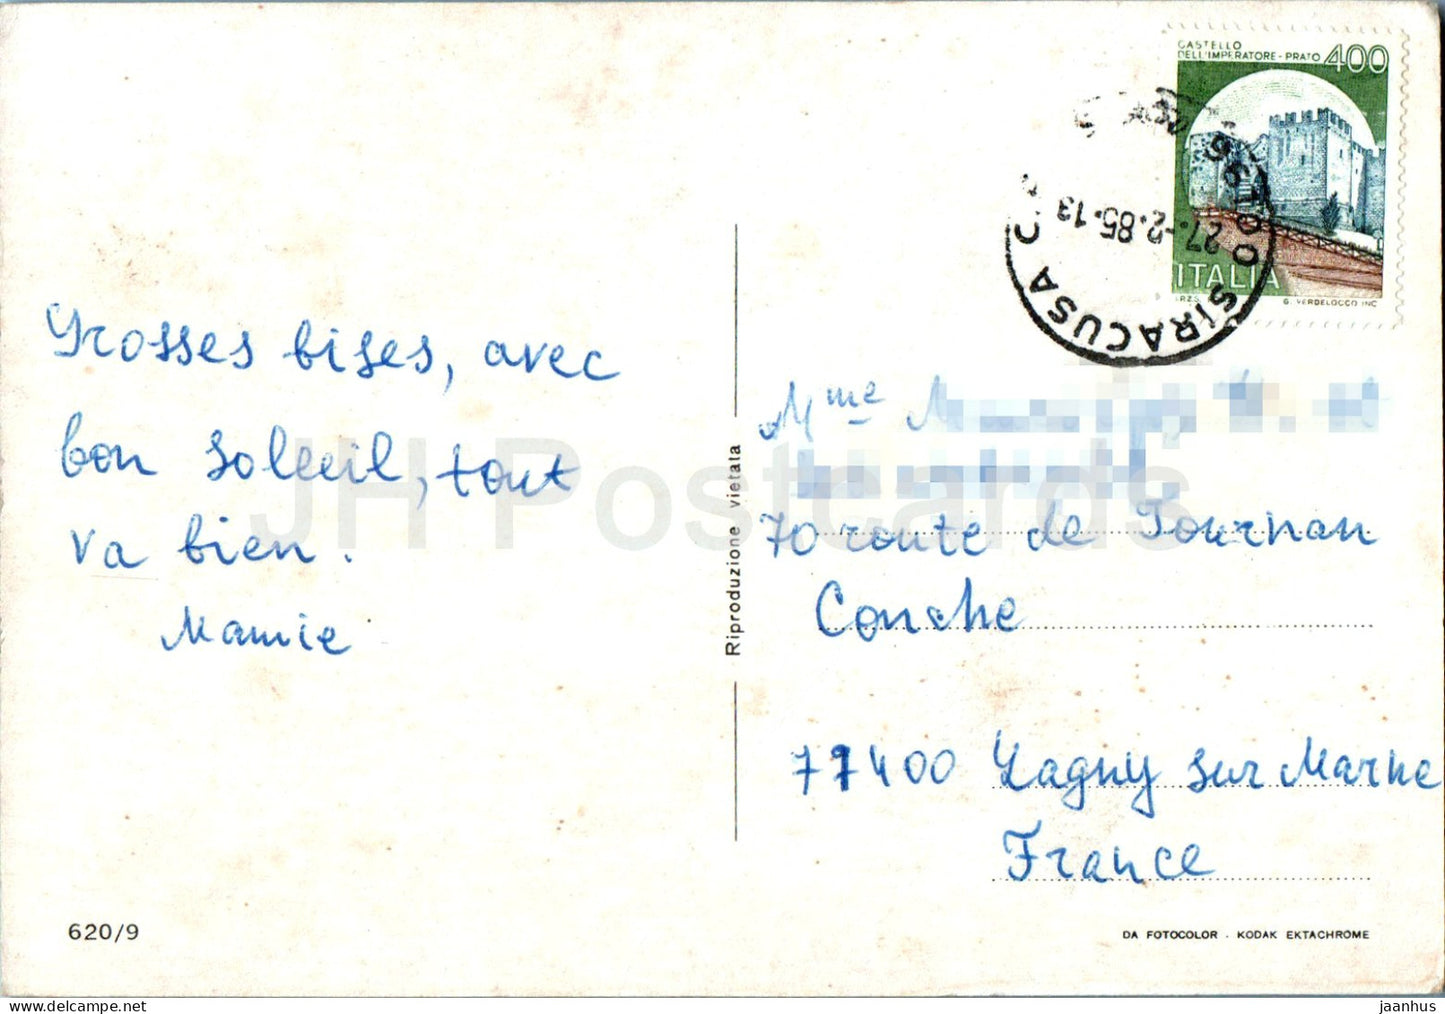 CASTELLO
DELL'IMPERATORE - PRATO 400
ITALIA
G. VERDELOCCO INC
96100 SIRACUSA C.
27.-2.85-13
Grosses bises, avec
bon soleil, tout
va bien.
Mamie
Riproduzione vietata
Mme
70 route de Tournan
Conche
77400 Lagny sur Marne
France
620/9
DA FOTOCOLOR - KODAK EKTACHROME
JH Postcards
jaanhus